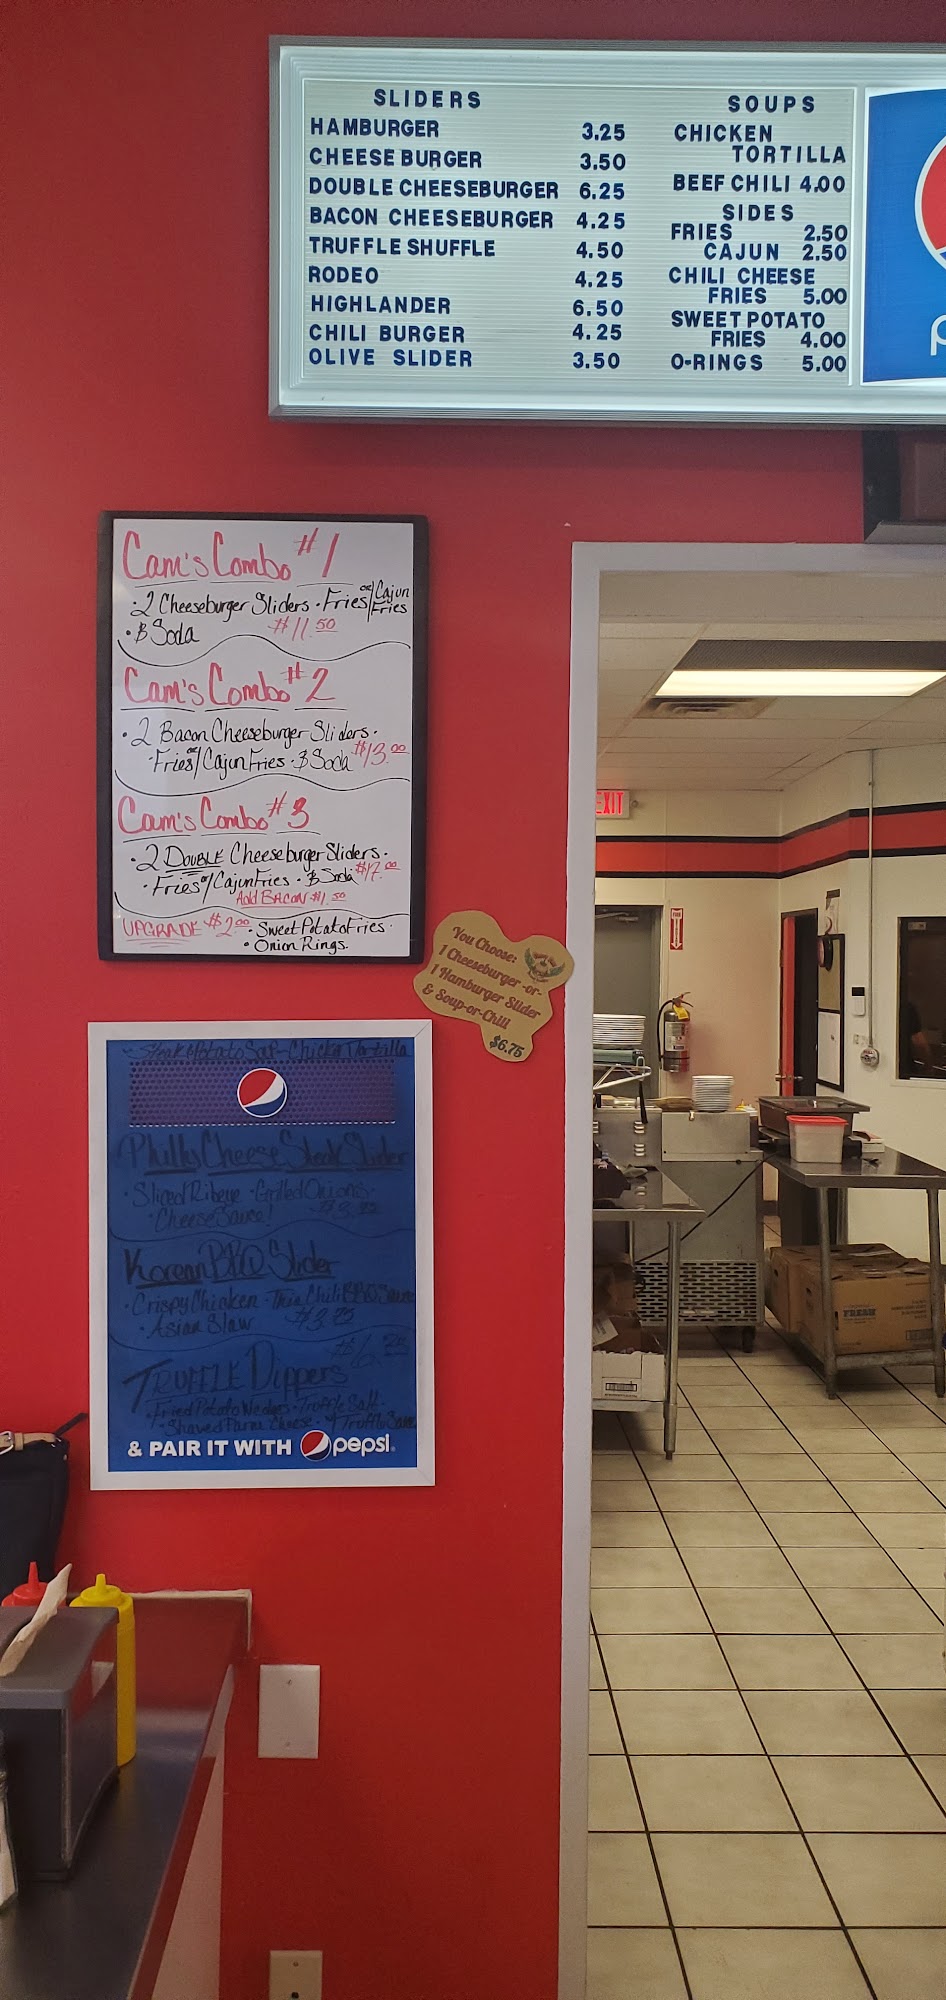 SLIDERS
HAMBURGER 3.25
CHEESE BURGER 3.50
DOUBLE CHEESEBURGER 6.25
BACON CHEESEBURGER 4.25
TRUFFLE SHUFFLE 4.50
RODEO 4.25
HIGHLANDER 6.50
CHILI BURGER 4.25
OLIVE SLIDER 3.50
SOUPS
CHICKEN
TORTILLA
BEEF CHILI 4.00
SIDES
FRIES 2.50
CAJUN 2.50
CHILI CHEESE
FRIES 5.00
SWEET POTATO
FRIES 4.00
O-RINGS 5.00
Cam's Combo #1
• 2 Cheeseburger Sliders • Fries or/ Cajun Fries
• & Soda $11.50
Cam's Combo #2
• 2 Bacon Cheeseburger Sliders •
• Fries or/ Cajun Fries • & Soda $13.00
Cam's Combo #3
• 2 DOUBLE Cheeseburger Sliders •
• Fries or/ Cajun Fries • & Soda $17.00
Add BACON $1.50
UPGRADE $2.00 • Sweet Potato Fries •
• Onion Rings.
You Choose:
1 Cheeseburger -or-
1 Hamburger Slider
& Soup-or-Chili
$6.75
Steak & Potato Soup - Chicken Tortilla
Philly Cheese Steak Slider
• Sliced Ribeye • Grilled Onions •
• Cheese Sauce!
Korean BBQ Slider
• Crispy Chicken • Thai Chili BBQ Sauce
• Asian Slaw $3.75
TRUFFLE Dippers
• Fried Potato Wedges • Truffle Salt •
• Shaved Parm Cheese • Truffle Sauce
& PAIR IT WITH pepsi
EXIT
FRESH